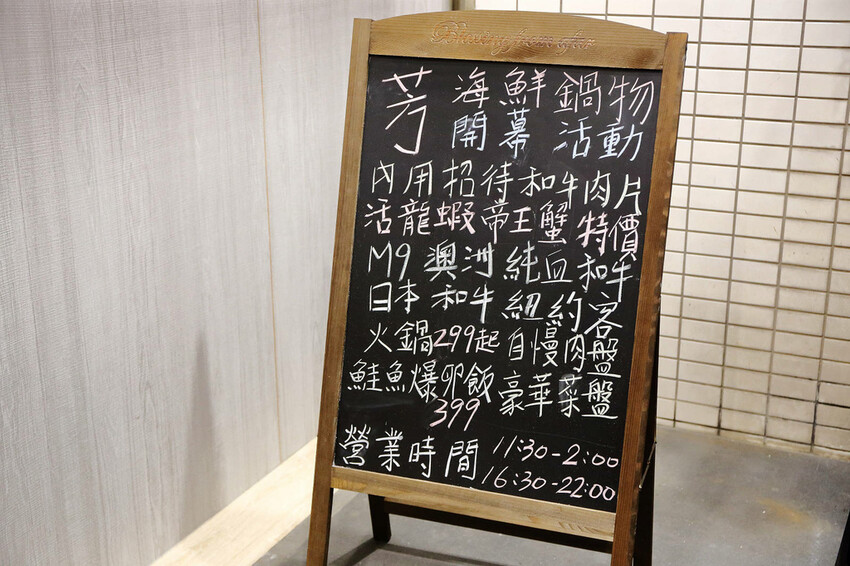 Blessing from afar
芳 海鮮鍋物
開幕活動
內用招待和牛肉片
活龍蝦帝王蟹特價
M9澳洲純血和牛
日本和牛紐約客
火鍋299起 自慢肉盤
鮭魚爆卵飯 豪華菜盤
399
營業時間 11:30-2:00
16:30-22:00